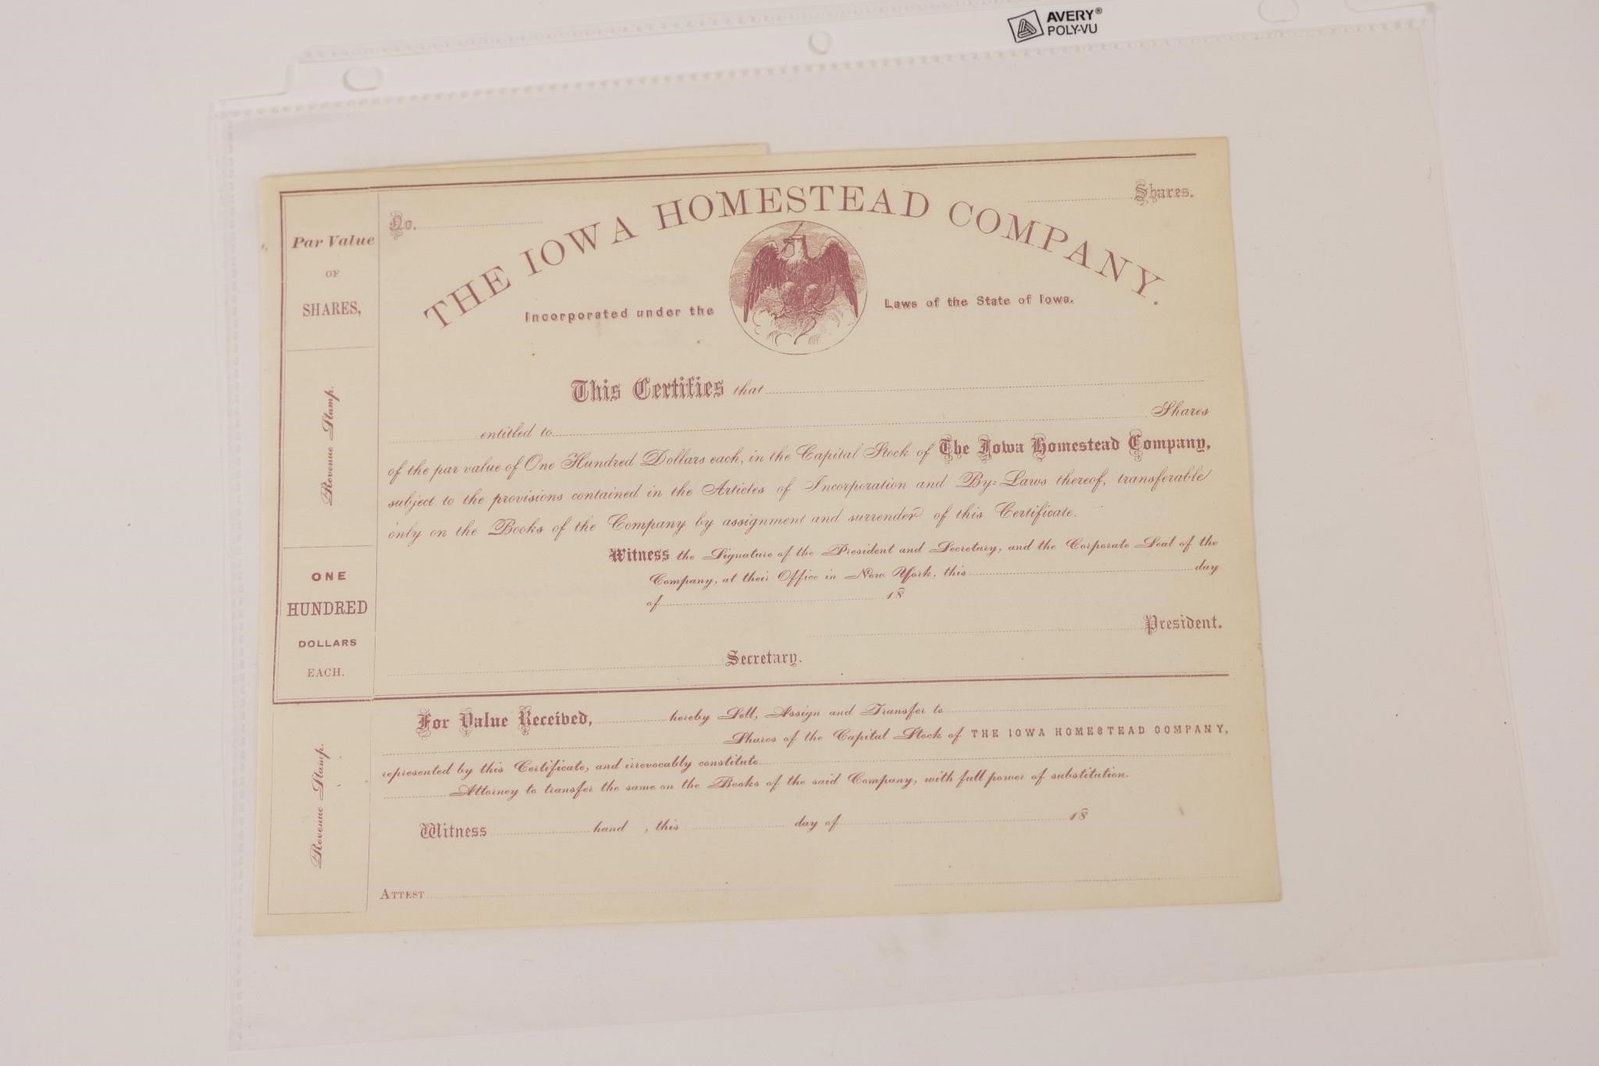 AVERY®
POLY-VU
No.
Shares.
THE IOWA HOMESTEAD COMPANY.
Incorporated under the Laws of the State of Iowa.
Par Value
OF
SHARES,
Revenue Stamp.
ONE
HUNDRED
DOLLARS
EACH.
This Certifies that
entitled to Shares
of the par value of One Hundred Dollars each, in the Capital Stock of The Iowa Homestead Company,
subject to the provisions contained in the Articles of Incorporation and By-Laws thereof, transferable
only on the Books of the Company by assignment and surrender of this Certificate.
Witness the Signature of the President and Secretary, and the Corporate Seal of the
Company, at their Office in New York, this day
of 18
President.
Secretary.
Revenue Stamp.
For Value Received, hereby Sell, Assign and Transfer to
Shares of the Capital Stock of THE IOWA HOMESTEAD COMPANY,
represented by this Certificate, and irrevocably constitute
Attorney to transfer the same on the Books of the said Company, with full power of substitution.
Witness hand , this day of 18
ATTEST